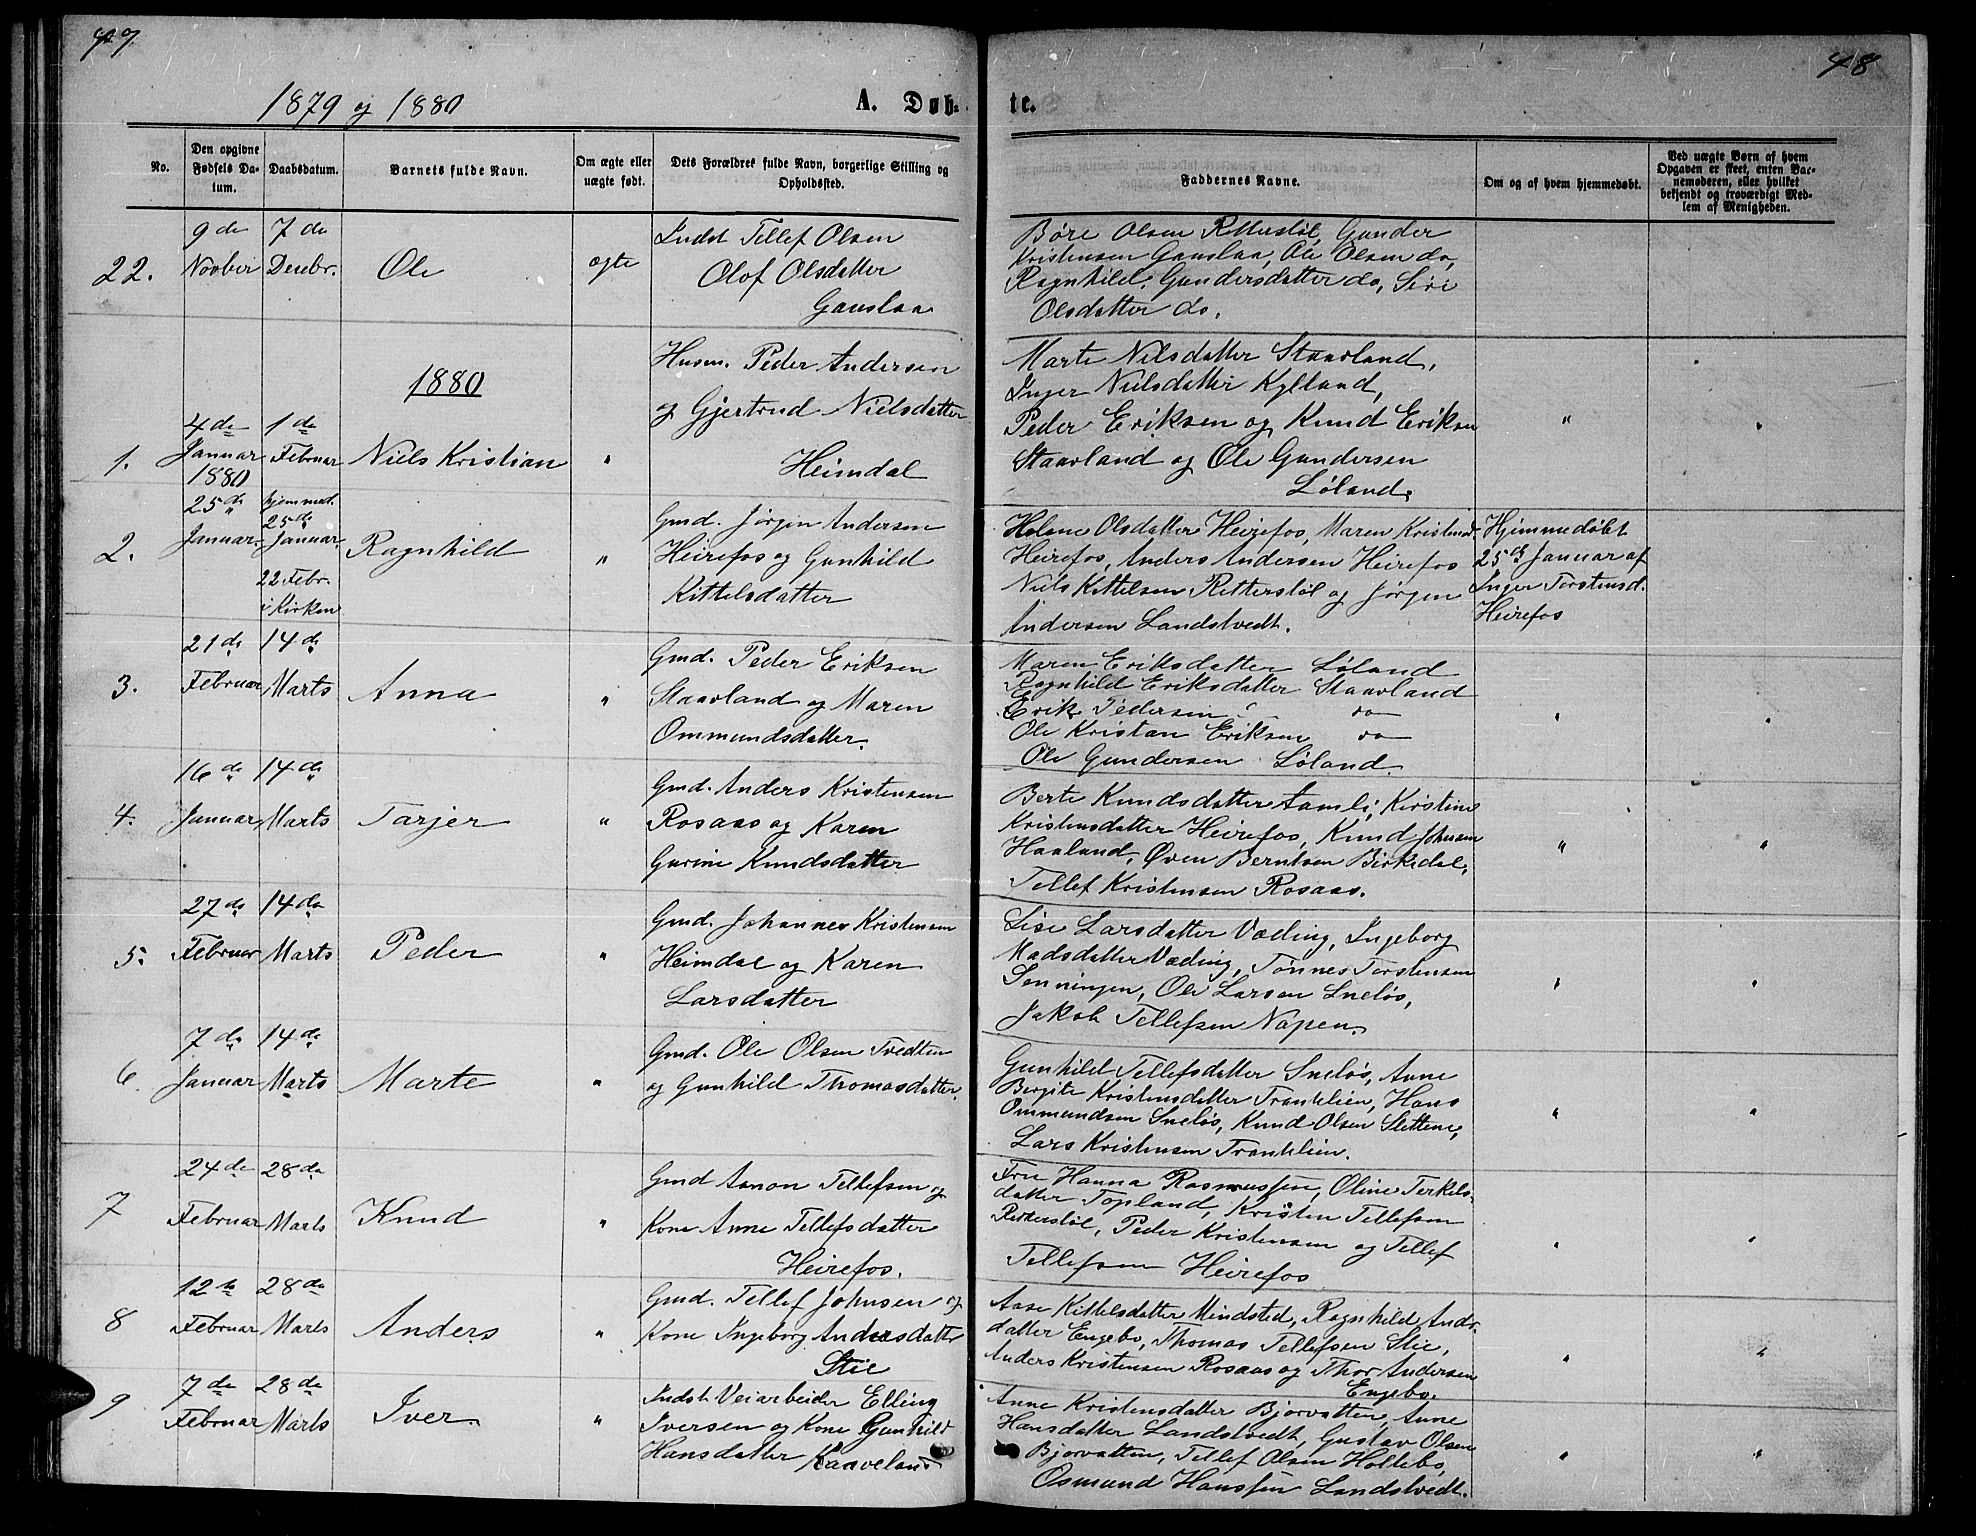 47
1879 og 1880
A. Døb-
No.
Den opgivne Fødsels Datum.
Daabsdatum.
Barnets fulde Navn.
Om ægte eller uægte født.
Dets Forældres fulde Navn, borgerlige Stilling og Opholdssted.
22.
9de
Novber
7de
Decbr.
Ole
ægte
Indst Tellef Olsen
Olof Olsdatter
Gauslaa
1880
1.
4de
Januar
1880
1de
Februar
Niels Kristian
"
Husm. Peder Andersen
og Gjertrud Nielsdatter
Heimdal
2.
25de
Januar
hjemmed.
25de
Januar
22 Febr.
i Kirken
Ragnhild
"
Gmd. Jørgen Andersen
Heirefos og Gunhild
Kittelsdatter
3.
21de
Februar
14de
Marts
Anna
"
Gmd. Peder Eriksen
Staavland og Maren
Ommundsdatter.
4.
16de
Januar
14de
Marts
Tarjer
"
Gmd. Anders Kristensen
Rosaas og Karen
Gurine Knudsdatter
5.
27de
Februar
14de
Marts
Peder
"
Gmd. Johannes Kristensen
Heimdal og Karen
Larsdatter
6.
7de
Januar
14de
Marts
Marte
"
Gmd. Ole Olsen Tvedten
og Gunhild Thomasdatter.
7
24de
Februar
28de
Marts
Knud
"
Gmd Aanon Tellefsen og
Kone Anne Tellefsdatter
Heirefos.
8
12te
Februar
28de
Marts
Anders
"
Gmd. Tellef Johnsen og
Kone Ingeborg Andersdatter
Stie
9
7de
Februar
28de
Marts
Iver
"
Indst Veiarbeider Elling
Iversen og Kone Gunhild
Hansdatter Kaaveland
48
te.
Faddernes Navne.
Om og af hvem hjemmedøbt.
Ved uægte Børn af hvem
Opgaven er skeet, enten Barnemoderen, eller hvilket bekjendt og troværdigt Medlem af Menigheden.
Børe Olsen Retterstøl, Gunder
Kristensen Gauslaa, Ole Olsen do,
Ragnhild Gundersdatter do, Siri
Olsdatter do.
Marte Nilsdatter Staavland,
Inger Nielsdatter Kylland,
Peder Eriksen og Knud Eriksen
Staavland og Ole Gundersen
Løland.
"
"
Helene Olsdatter Heirefos, Maren Kristensd.
Heirefos, Anders Andersen Heirefos
Niels Kittelsen Retterstøl og Jørgen
Andersen Landstvedt.
Hjemmedøbt
25de Januar af
Inger Torstensd.
Heirefos
Maren Eriksdatter Løland
Ragnhild Eriksdatter Staavland
Erik Pedersen do
Ole Kristan Eriksen do
Ole Gundersen Løland.
"
"
Berte Knudsdatter Samli, Kirstine
Kristensdatter Heirefos, Knud Johnsen
Haaland, Øven Berntsen Birkedal,
Tellef Kristensen Rosaas.
"
"
Lise Larsdatter Væding, Ingeborg
Madsdatter Væding, Tønnes Torstensen
Senningen, Ole Larsen Sneløs,
Jakob Tellefsen Napen.
"
"
Gunhild Tellefsdatter Sneløs, Anne
Bergite Kristensdatter Tranklien, Hans
Ommundsen Sneløs, Knud Olsen Slettene,
Lars Kristensen Tranklien.
"
"
Fru Hanna Rasmussen, Oline Terkels-
datter Topland, Kristen Tellefsen
Retterstøl, Peder Kristensen og Tellef
Tellefsen Heirefos
"
"
Aase Kittelsdatter Mindsted, Ragnhild Anders-
datter Engebo, Thomas Tellefsen Stie,
Anders Kristensen Rosaas og Thor Andersen
Engebo.
"
"
Anne Kristensdatter Bjorvatten, Anne
Hansdatter Landstvedt, Gustav Olsen
Bjorvatten, Tellef Olsen Hollebo,
Osmund Hanssen Landstvedt.
"
"